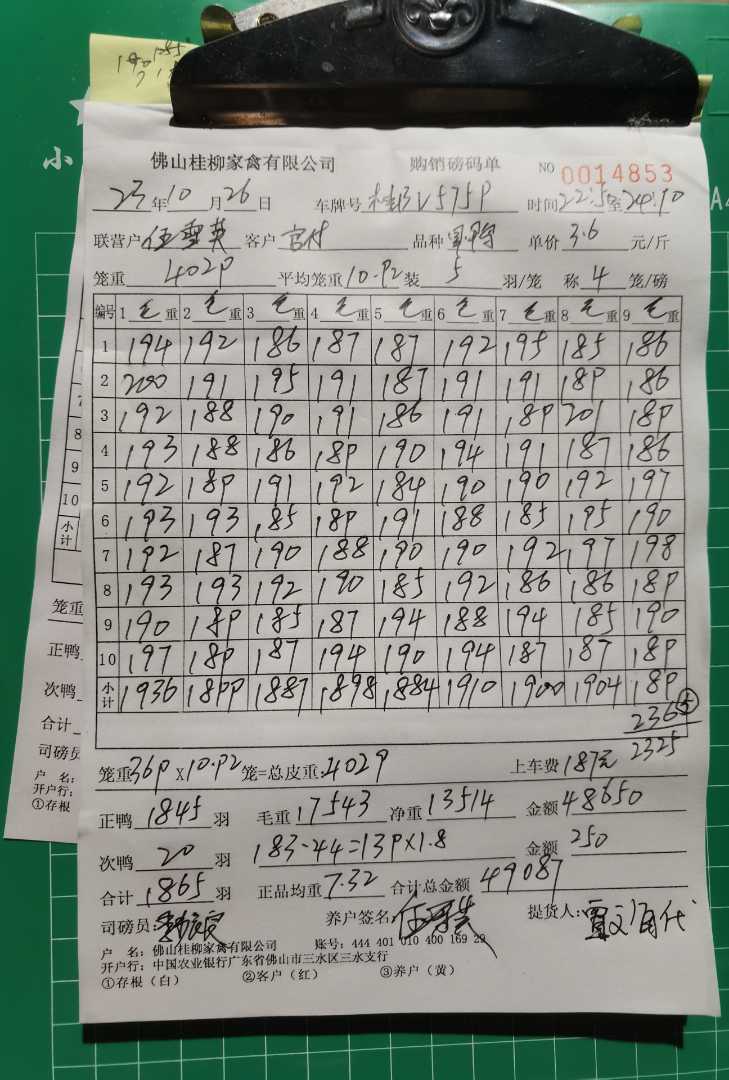 佛山桂柳家禽有限公司 购销磅码单 NO 0014853
23年10月26日 车牌号 时间22:50至24:10
联营户 客户 品种 单价 3.6 元/斤
笼重 4029 平均笼重 10.92 装 5 羽/笼 称 4 笼/磅
编号 1 毛重 2 毛重 3 毛重 4 毛重 5 毛重 6 毛重 7 毛重 8 毛重 9 毛重
1 194 192 186 187 187 192 195 185 186
2 200 191 195 191 187 191 191 189 186
3 192 188 190 191 186 191 189 201 189
4 193 188 186 189 190 194 191 187 186
5 192 189 191 192 184 190 190 192 197
6 193 193 185 189 191 188 185 195 190
7 192 187 190 188 190 190 192 197 198
8 193 193 192 190 185 192 186 186 189
9 190 189 185 187 194 188 194 185 190
10 197 189 187 194 190 194 187 187 189
小计 1936 1899 1887 1898 1884 1910 1900 1904 189
2365
笼重 369 X 10.92 笼=总皮重: 4029 上车费 187元 2325
正鸭 1845 羽 毛重 17543 净重 13514 金额 48650
次鸭 20 羽 183-44=139×1.8 金额 250
合计 1865 羽 正品均重 7.32 合计总金额 49087
司磅员: 养户签名: 提货人:
户 名: 佛山桂柳家禽有限公司 账号: 444 401 010 400 169 29
开户行: 中国农业银行广东省佛山市三水区三水支行
①存根（白） ②客户（红） ③养户（黄）
小
8
9
10
小计
笼重
正鸭
次鸭
合计
司磅员
户 名:
开户行:
①存根